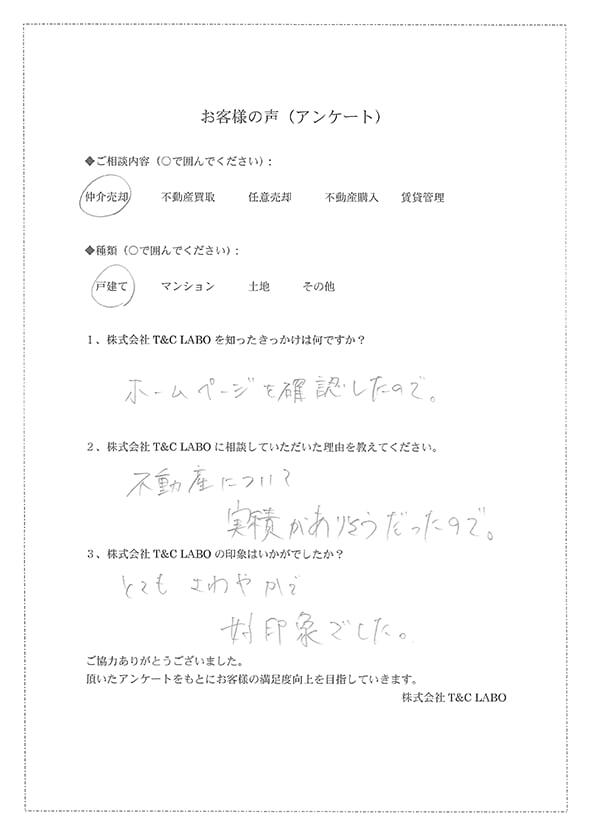 お客様の声（アンケート）
◆ご相談内容（○で囲んでください）:
仲介売却 不動産買取 任意売却 不動産購入 賃貸管理
◆種類（○で囲んでください）:
戸建て マンション 土地 その他
１、株式会社 T&C LABO を知ったきっかけは何ですか？
ホームページを確認したので。
２、株式会社 T&C LABO に相談していただいた理由を教えてください。
不動産について
実績がありそうだったので。
３、株式会社 T&C LABO の印象はいかがでしたか？
とても さわやかで
好印象でした。
ご協力ありがとうございました。
頂いたアンケートをもとにお客様の満足度向上を目指していきます。
株式会社 T&C LABO